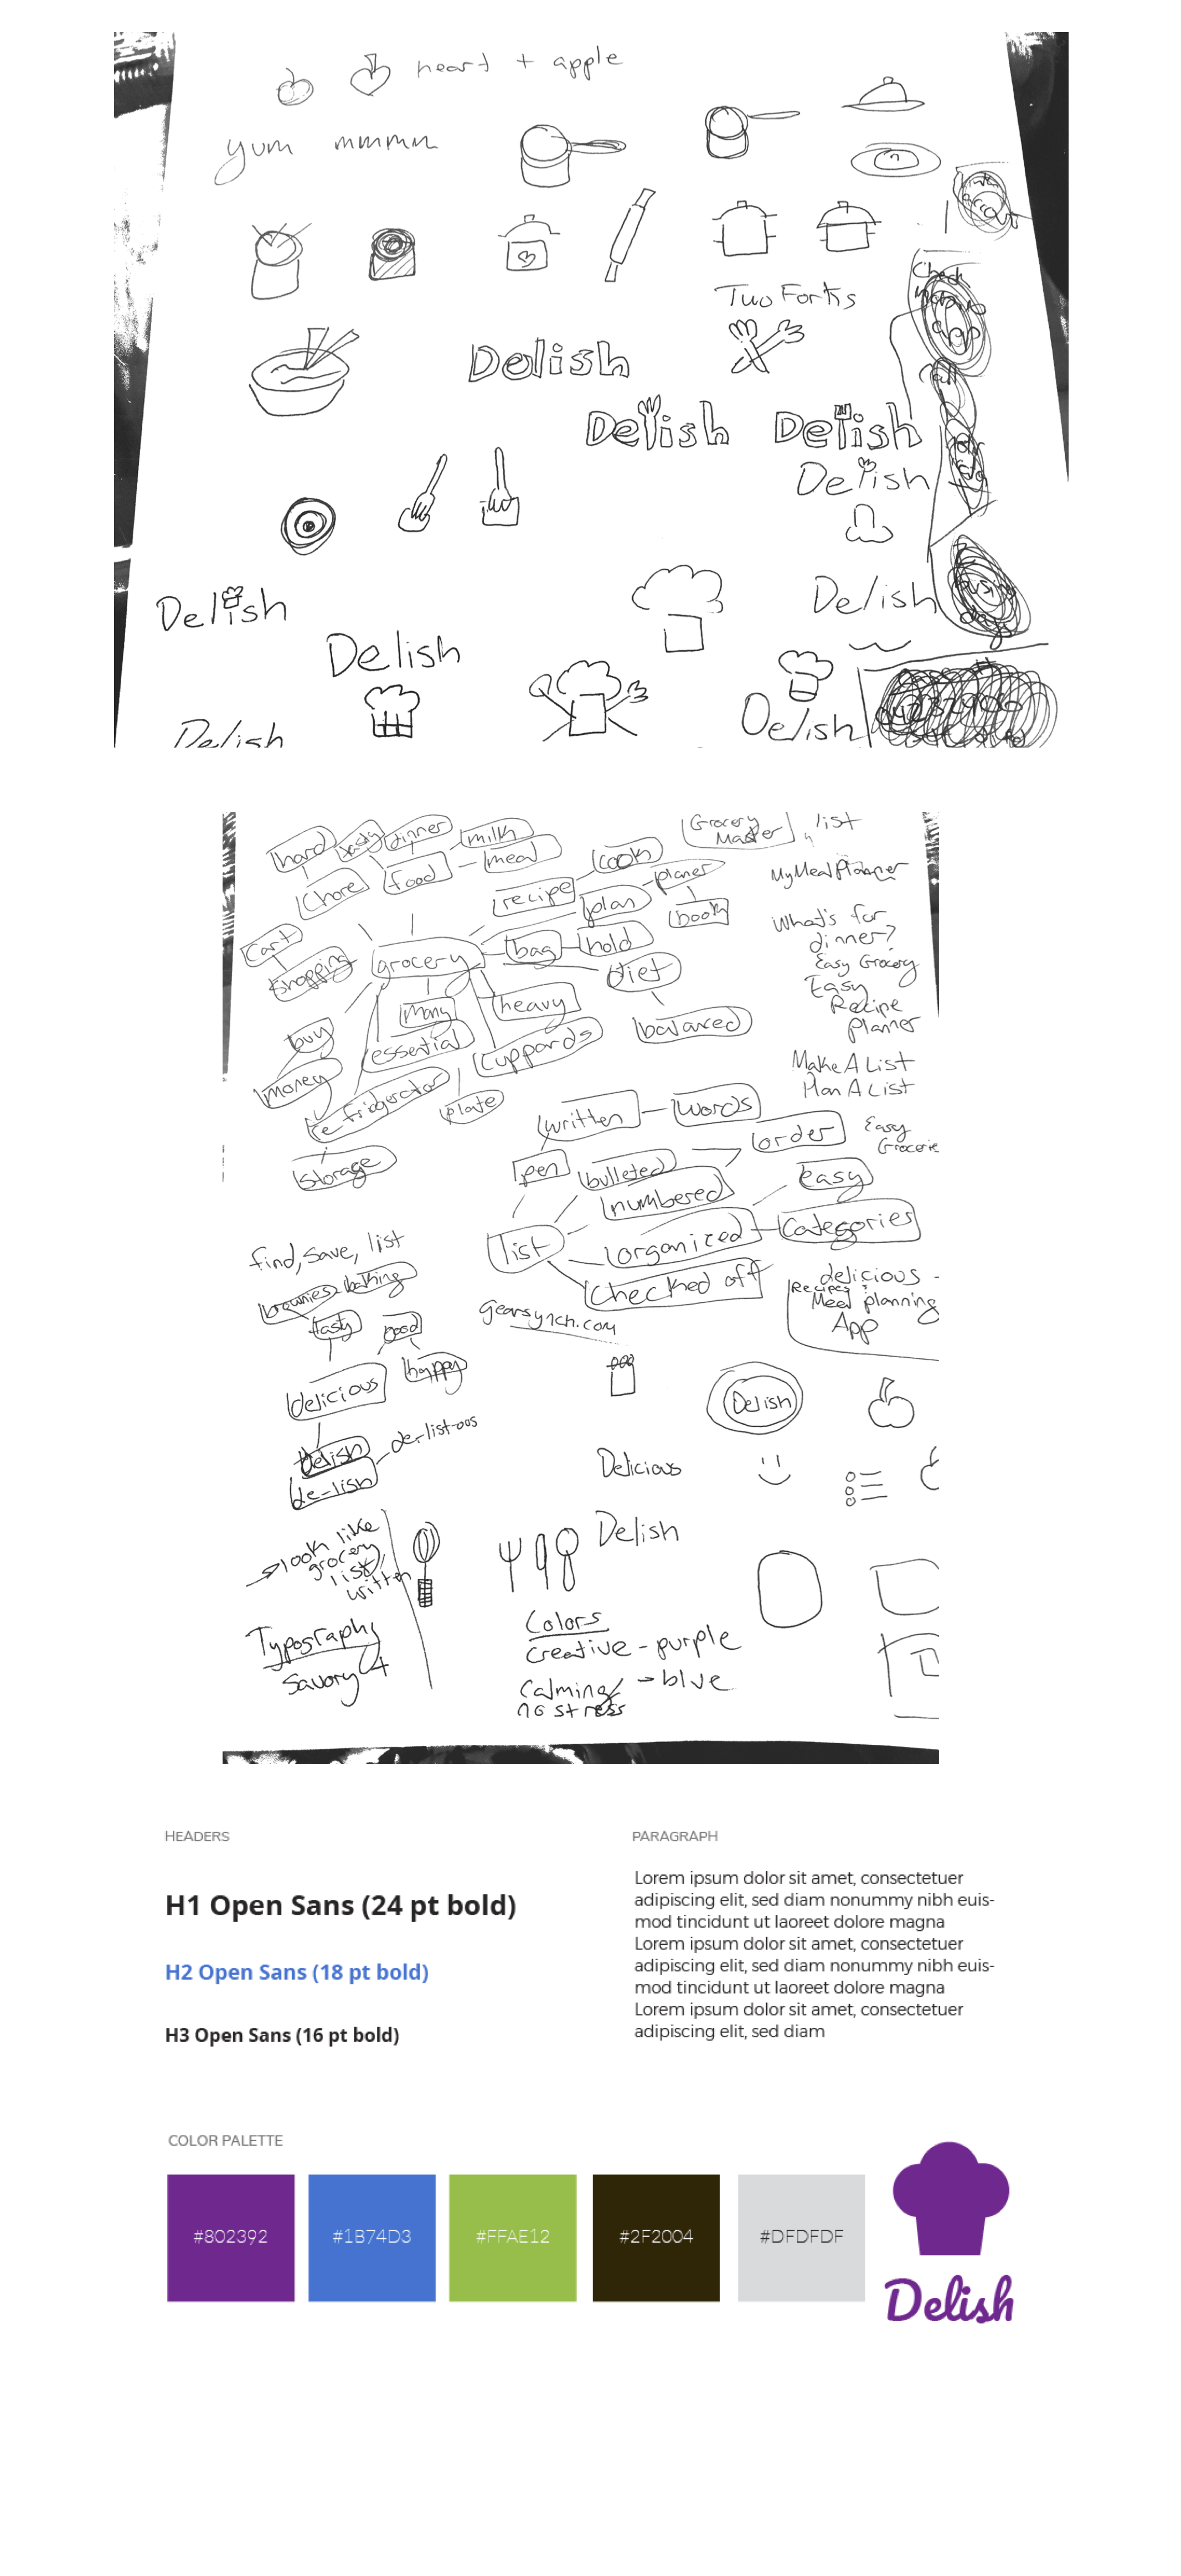 heart + apple
yum mmmm
Two Forks
Check
app
Delish
Delish
Delish
Delish
Delish
Delish
Delish
Delish
Delish
hard
tasty
dinner
milk
Chore
food
meal
Grocery
Master
list
cook
recipe
plan
planer
book
MyMealPlanner
Cart
shopping
grocery
bag
hold
diet
What's for
dinner?
Easy Grocery
Easy
Recipe
Planner
buy
many
heavy
essential
cuppards
balanced
money
refridgerator
plate
storage
Make A List
Plan A List
written
words
order
Easy
Grocerie
pen
bulleted
numbered
easy
list
organized
Categories
Checked off
find, save, list
brownies baking
tasty
good
happy
delicious
Delish
de-lish
de-list-oos
gearsynch.com
delicious -
Recipes
Meal planning
App
Delish
Delicious
Delish
look like
grocery
list,
written
Typography
Savory
Colors
creative - purple
calming/
no stress
- blue
HEADERS
H1 Open Sans (24 pt bold)
H2 Open Sans (18 pt bold)
H3 Open Sans (16 pt bold)
PARAGRAPH
Lorem ipsum dolor sit amet, consectetuer
adipiscing elit, sed diam nonummy nibh euis-
mod tincidunt ut laoreet dolore magna
Lorem ipsum dolor sit amet, consectetuer
adipiscing elit, sed diam nonummy nibh euis-
mod tincidunt ut laoreet dolore magna
Lorem ipsum dolor sit amet, consectetuer
adipiscing elit, sed diam
COLOR PALETTE
#802392
#1B74D3
#FFAE12
#2F2004
#DFDFDF
Delish